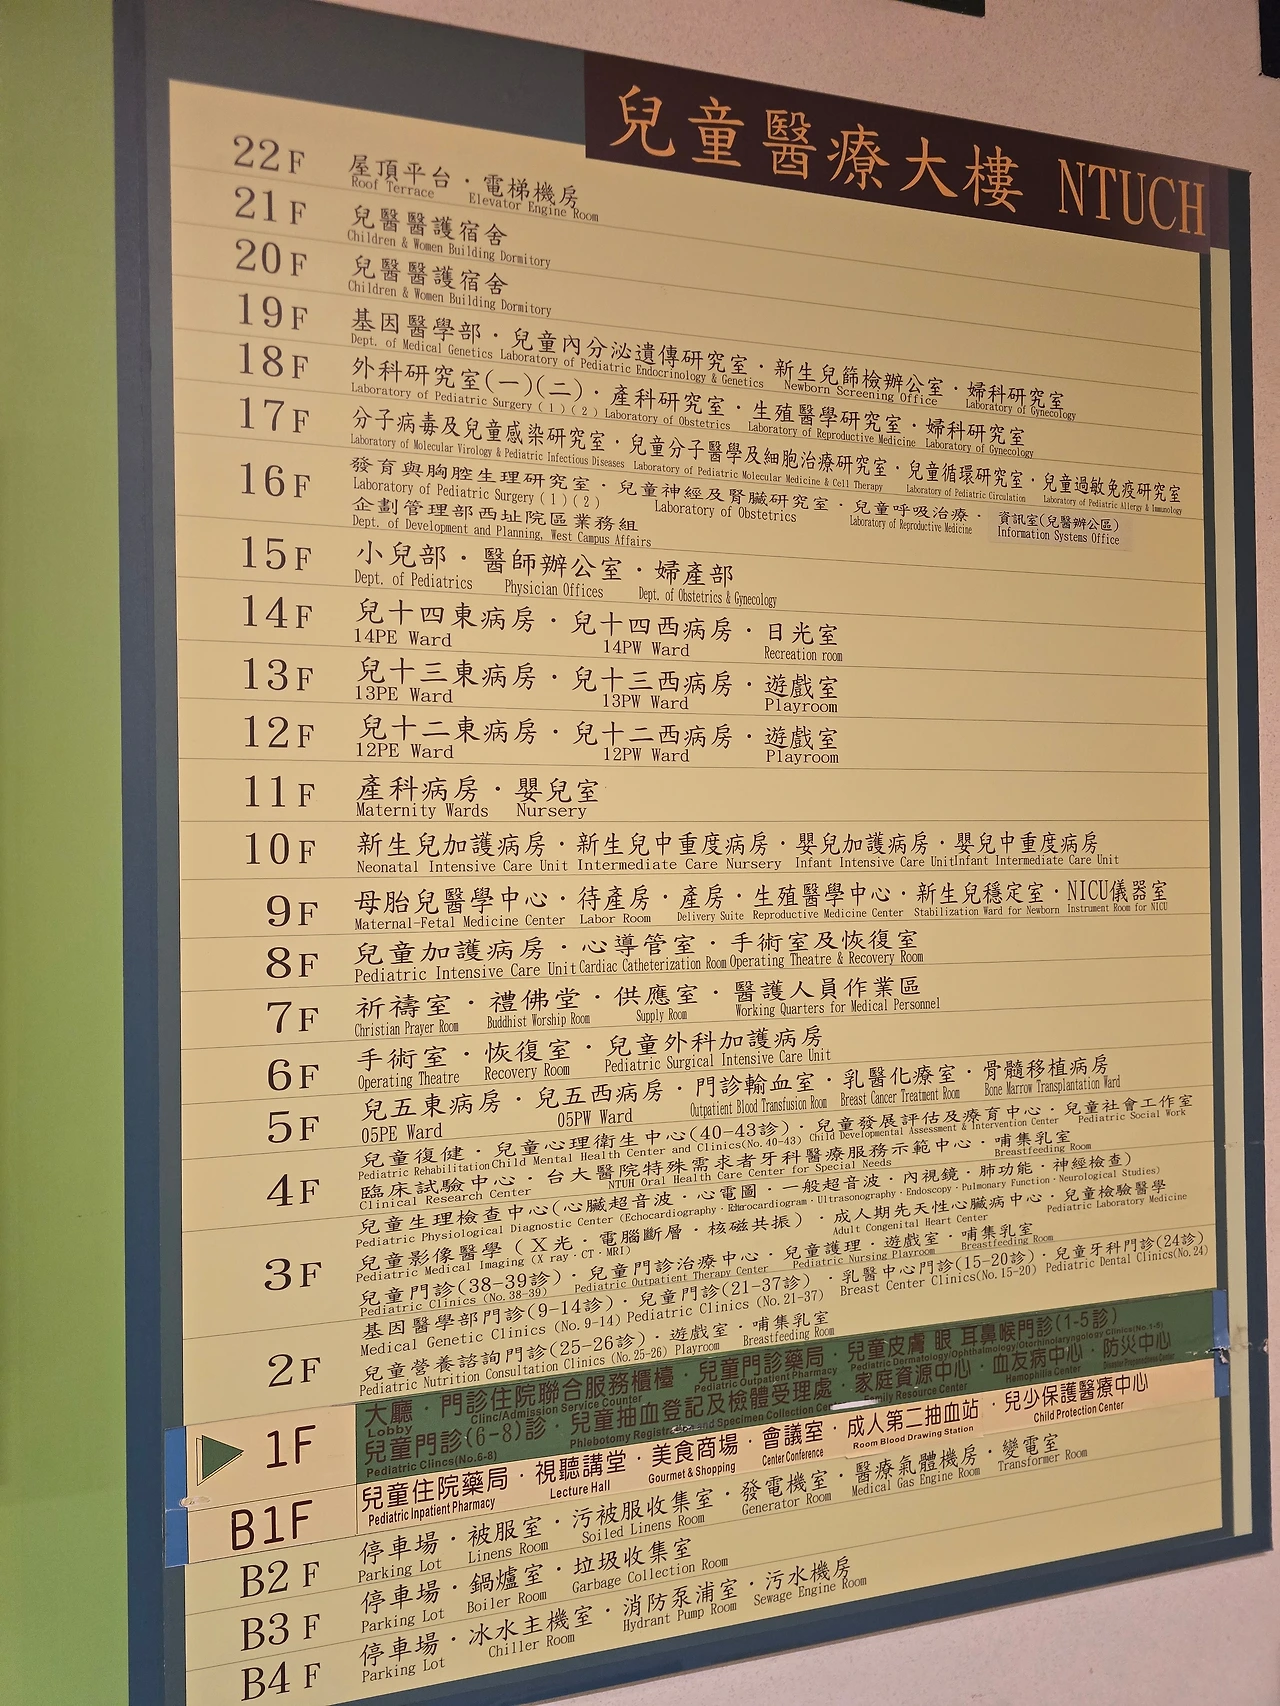 兒童醫療大樓 NTUCH
22F 屋頂平台・電梯機房
Roof Terrace Elevator Engine Room
21F 兒醫醫護宿舍
Children & Women Building Dormitory
20F 兒醫醫護宿舍
Children & Women Building Dormitory
19F 基因醫學部・兒童內分泌遺傳研究室・新生兒篩檢辦公室・婦科研究室
Dept. of Medical Genetics Laboratory of Pediatric Endocrinology & Genetics Newborn Screening Office Laboratory of Gynecology
18F 外科研究室(一)(二)・產科研究室・生殖醫學研究室・婦科研究室
Laboratory of Pediatric Surgery (1)(2) Laboratory of Obstetrics Laboratory of Reproductive Medicine Laboratory of Gynecology
17F 分子病毒及兒童感染研究室・兒童分子醫學及細胞治療研究室・兒童循環研究室・兒童過敏免疫研究室
Laboratory of Molecular Virology & Pediatric Infectious Diseases Laboratory of Pediatric Molecular Medicine & Cell Therapy Laboratory of Pediatric Circulation Laboratory of Pediatric Allergy & Immunology
16F 發育與胸腔生理研究室・兒童神經及腎臟研究室・兒童呼吸治療・資訊室(兒醫辦公區)
Laboratory of Pediatric Surgery (1)(2) Laboratory of Obstetrics Laboratory of Reproductive Medicine Information Systems Office
企劃管理部西址院區業務組
Dept. of Development and Planning, West Campus Affairs
15F 小兒部・醫師辦公室・婦產部
Dept. of Pediatrics Physician Offices Dept. of Obstetrics & Gynecology
14F 兒十四東病房・兒十四西病房・日光室
14PE Ward 14PW Ward Recreation room
13F 兒十三東病房・兒十三西病房・遊戲室
13PE Ward 13PW Ward Playroom
12F 兒十二東病房・兒十二西病房・遊戲室
12PE Ward 12PW Ward Playroom
11F 產科病房・嬰兒室
Maternity Wards Nursery
10F 新生兒加護病房・新生兒中重度病房・嬰兒加護病房・嬰兒中重度病房
Neonatal Intensive Care Unit Intermediate Care Nursery Infant Intensive Care Unit Infant Intermediate Care Unit
9F 母胎兒醫學中心・待產房・產房・生殖醫學中心・新生兒穩定室・NICU儀器室
Maternal-Fetal Medicine Center Labor Room Delivery Suite Reproductive Medicine Center Stabilization Ward for Newborn Instrument Room for NICU
8F 兒童加護病房・心導管室・手術室及恢復室
Pediatric Intensive Care Unit Cardiac Catheterization Room Operating Theatre & Recovery Room
7F 祈禱室・禮佛堂・供應室・醫護人員作業區
Christian Prayer Room Buddhist Worship Room Supply Room Working Quarters for Medical Personnel
6F 手術室・恢復室・兒童外科加護病房
Operating Theatre Recovery Room Pediatric Surgical Intensive Care Unit
5F 兒五東病房・兒五西病房・門診輸血室・乳醫化療室・骨髓移植病房
05PE Ward 05PW Ward Outpatient Blood Transfusion Room Breast Cancer Treatment Room Bone Marrow Transplantation Ward
4F 兒童復健・兒童心理衛生中心(40-43診)・兒童發展評估及療育中心・兒童社會工作室
Pediatric Rehabilitation Child Mental Health Center and Clinics(No.40-43) Child Developmental Assessment & Intervention Center Pediatric Social Work
臨床試驗中心・台大醫院特殊需求者牙科醫療服務示範中心・哺集乳室
Clinical Research Center NTUH Oral Health Care Center for Special Needs Breastfeeding Room
3F 兒童生理檢查中心(心臟超音波・心電圖・一般超音波・內視鏡・肺功能・神經檢查)
Pediatric Physiological Diagnostic Center (Echocardiography・Electrocardiogram・Ultrasonography・Endoscopy・Pulmonary Function・Neurological Studies)
兒童影像醫學(X光・電腦斷層・核磁共振)・成人期先天性心臟病中心・兒童檢驗醫學
Pediatric Medical Imaging (X ray・CT・MRI) Adult Congenital Heart Center Pediatric Laboratory Medicine
兒童門診(38-39診)・兒童門診治療中心・兒童護理・遊戲室・哺集乳室
Pediatric Clinics (No.38-39) Pediatric Outpatient Therapy Center Pediatric Nursing Playroom Breastfeeding Room
2F 基因醫學部門診(9-14診)・兒童門診(21-37診)・乳醫中心門診(15-20診)・兒童牙科門診(24診)
Medical Genetic Clinics (No.9-14) Pediatric Clinics (No.21-37) Breast Center Clinics(No.15-20) Pediatric Dental Clinics(No.24)
兒童營養諮詢門診(25-26診)・遊戲室・哺集乳室
Pediatric Nutrition Consultation Clinics (No.25-26) Playroom Breastfeeding Room
1F 大廳・門診住院聯合服務櫃檯・兒童門診藥局・兒童皮膚 眼 耳鼻喉門診(1-5診)
Lobby Clinc/Admission Service Counter Pediatric Outpatient Pharmacy Pediatric Dermatology/Ophthalmology/Otorhinolaryngology Clinics(No.1-5)
兒童門診(6-8)診・兒童抽血登記及檢體受理處・家庭資源中心・血友病中心・防災中心
Pediatric Clincs(No.6-8) Phlebotomy Registration and Specimen Collection Family Resource Center Hemophilia Center
B1F 兒童住院藥局・視聽講堂・美食商場・會議室・成人第二抽血站・兒少保護醫療中心
Pediatric Inpatient Pharmacy Lecture Hall Gourmet & Shopping Center Conference Room Blood Drawing Station Child Protection Center
B2F 停車場・被服室・污被服收集室・發電機室・醫療氣體機房・變電室
Parking Lot Linens Room Soiled Linens Room Generator Room Medical Gas Engine Room Transformer Room
B3F 停車場・鍋爐室・垃圾收集室
Parking Lot Boiler Room Garbage Collection Room
B4F 停車場・冰水主機室・消防泵浦室・污水機房
Parking Lot Chiller Room Hydrant Pump Room Sewage Engine Room